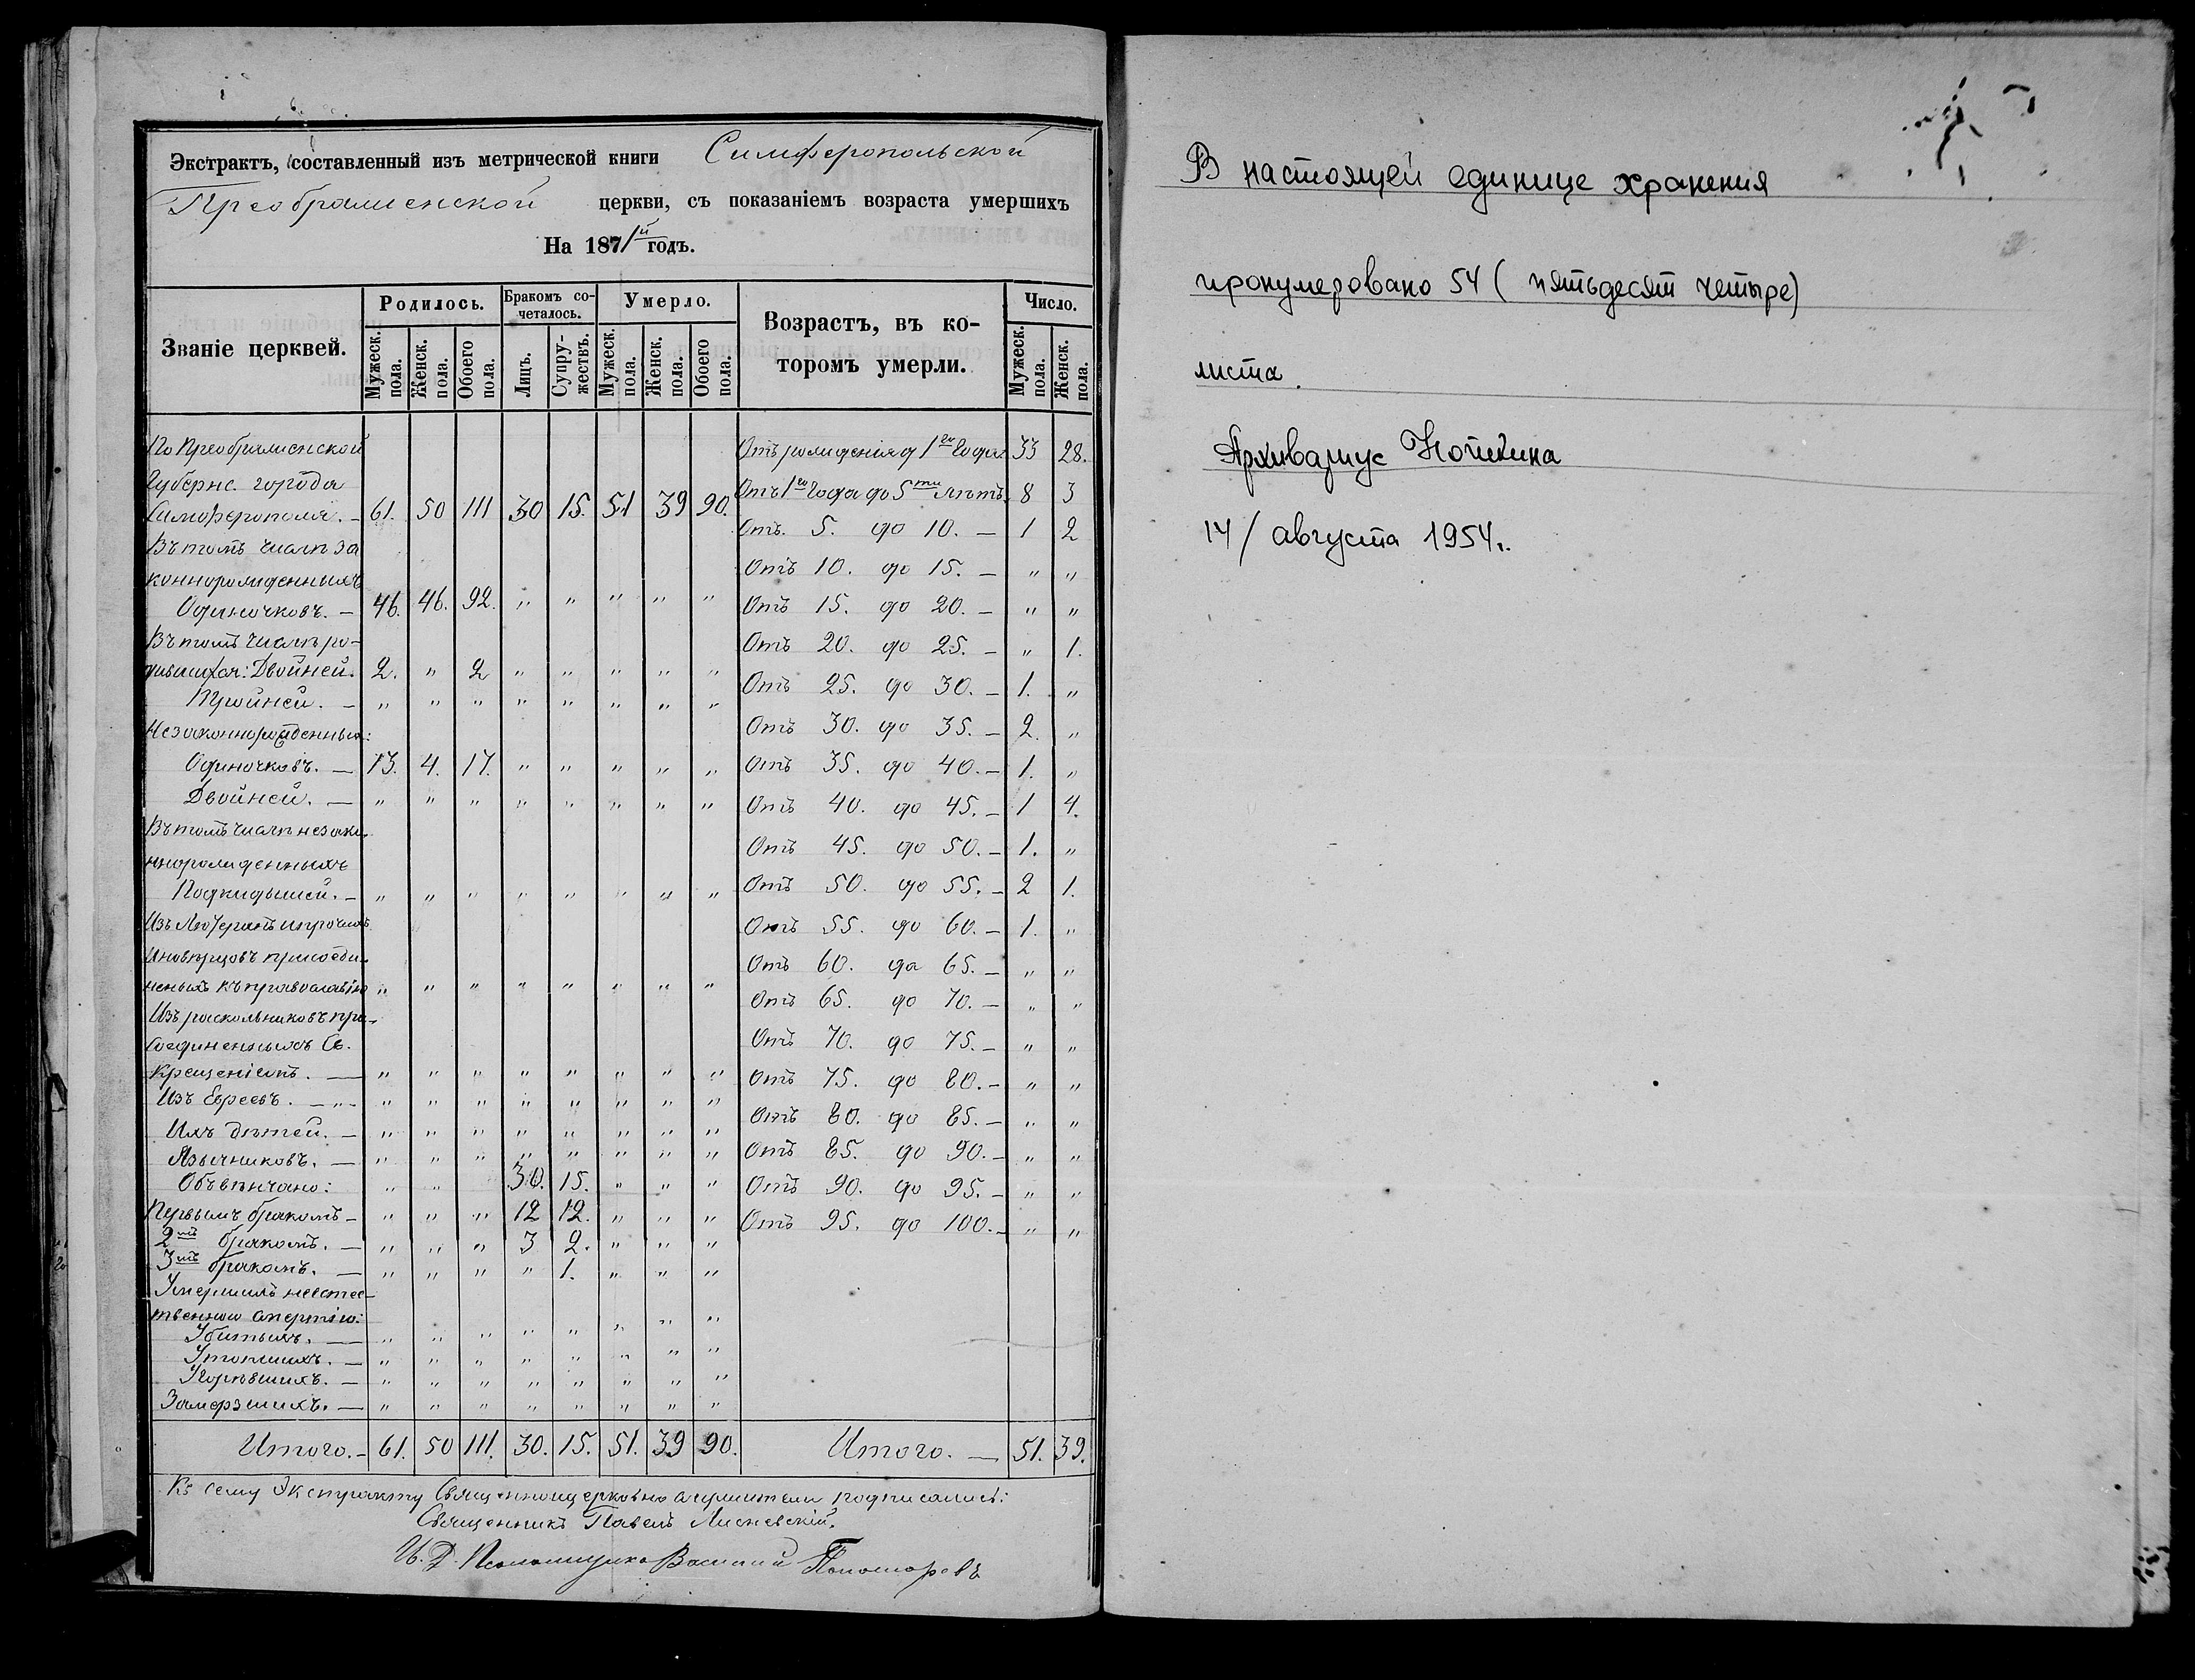 Экстрактъ, составленный изъ метрической книги Симферопольской
Преображенской церкви, съ показаніемъ возраста умершихъ
На 1871й годъ.
Званіе церквей. Родилось. Бракомъ сочеталось. Умерло. Возрастъ, въ которомъ умерли. Число.
Мужеск. пола. Женск. пола. Обоего пола. Лицъ. Супружествъ. Мужеск. пола. Женск. пола. Обоего пола. Мужеск. пола. Женск. пола.
По Преображенской
Губернс. города
Симферополя. — 61. 50 111 30 15. 51 39 90.
Въ томъ числѣ за
коннорожденныхъ
Одиночковъ. — 46. 46. 92. „ „ „ „ „
Въ томъ числѣ ро-
дившихся: Двойней. 2. „ 2 „ „ „ „ „
Тройней. — „ „ „ „ „ „ „ „
Незаконнорожденныхъ:
Одиночковъ. — 13. 4. 17. „ „ „ „ „
Двойней. — „ „ „ „ „ „ „ „
Въ томъ числѣ незако-
ннорожденныхъ
Подкидышей. — „ „ „ „ „ „ „ „
Изъ Лютеранъ и прочихъ
Иновѣрцовъ присоеди-
неныхъ къ православію „ „ „ „ „ „ „ „
Изъ раскольниковъ при-
соединенныхъ Св.
Крещеніемъ. — „ „ „ „ „ „ „ „
Изъ Евреевъ. — „ „ „ „ „ „ „ „
Ихъ дѣтей. — „ „ „ „ „ „ „ „
Язычниковъ. — „ „ „ „ „ „ „ „
Обвѣнчано: „ „ 30. 15. „ „ „
Первымъ бракомъ — „ „ „ 12 12. „ „ „
2мъ бракомъ. — „ „ „ 3 2. „ „ „
3мъ бракомъ. — „ „ „ „ 1. „ „ „
Умершихъ неестес-
твенною смертію:
Убитыхъ. — „ „ „ „ „ „ „ „
Утопшихъ. — „ „ „ „ „ „ „ „
Згорѣвшихъ. — „ „ „ „ „ „ „ „
Замерзшихъ. — „ „ „ „ „ „ „ „
Итого. — 61. 50 111. 30. 15. 51. 39 90.
Отъ рожденія до 1го Года 33 28.
Отъ 1го Года до 5ти лѣтъ. 8 3
Отъ. 5. до 10. — 1 2
Отъ 10. до 15. — „ „
Отъ 15. до 20. — „ „
Отъ 20. до 25. — „ 1.
Отъ 25. до 30. — 1. „
Отъ 30. до 35. — 2. „
Отъ 35. до 40. — 1. „
Отъ 40. до 45. — 1 4.
Отъ 45. до 50. — 1. „
Отъ 50. до 55. — 2 1.
Отъ 55. до 60. — 1. „
Отъ 60. да 65. — „ „
Отъ 65. до 70. — „ „
Отъ 70. до 75. — „ „
Отъ 75. до 80. — „ „
Отъ 80. до 85. — „ „
Отъ 85. до 90. — „ „
Отъ 90. до 95. — „ „
Отъ 95. до 100. — „ „
Итого. — 51. 39.
Къ сему Экстракту Священноцерковнослужители подписались:
Священникъ Павелъ
И. Д. Псаломщика Василий Пономаревъ
В настоящей единице хранения
пронумеровано 54 (пятьдесят четыре)
листа.
Архивариус
14/ августа 1954г.